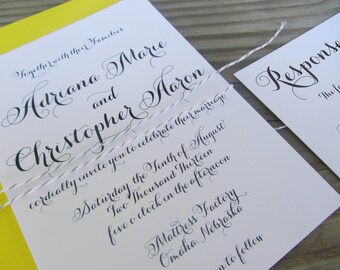 Together with their Families
Adriana Marie
and
Christopher Aaron
cordially invite you to celebrate their marriage
Saturday the Tenth of August
Two Thousand Thirteen
five o'clock in the afternoon
Mattress Factory
Omaha, Nebraska
to follow
Response